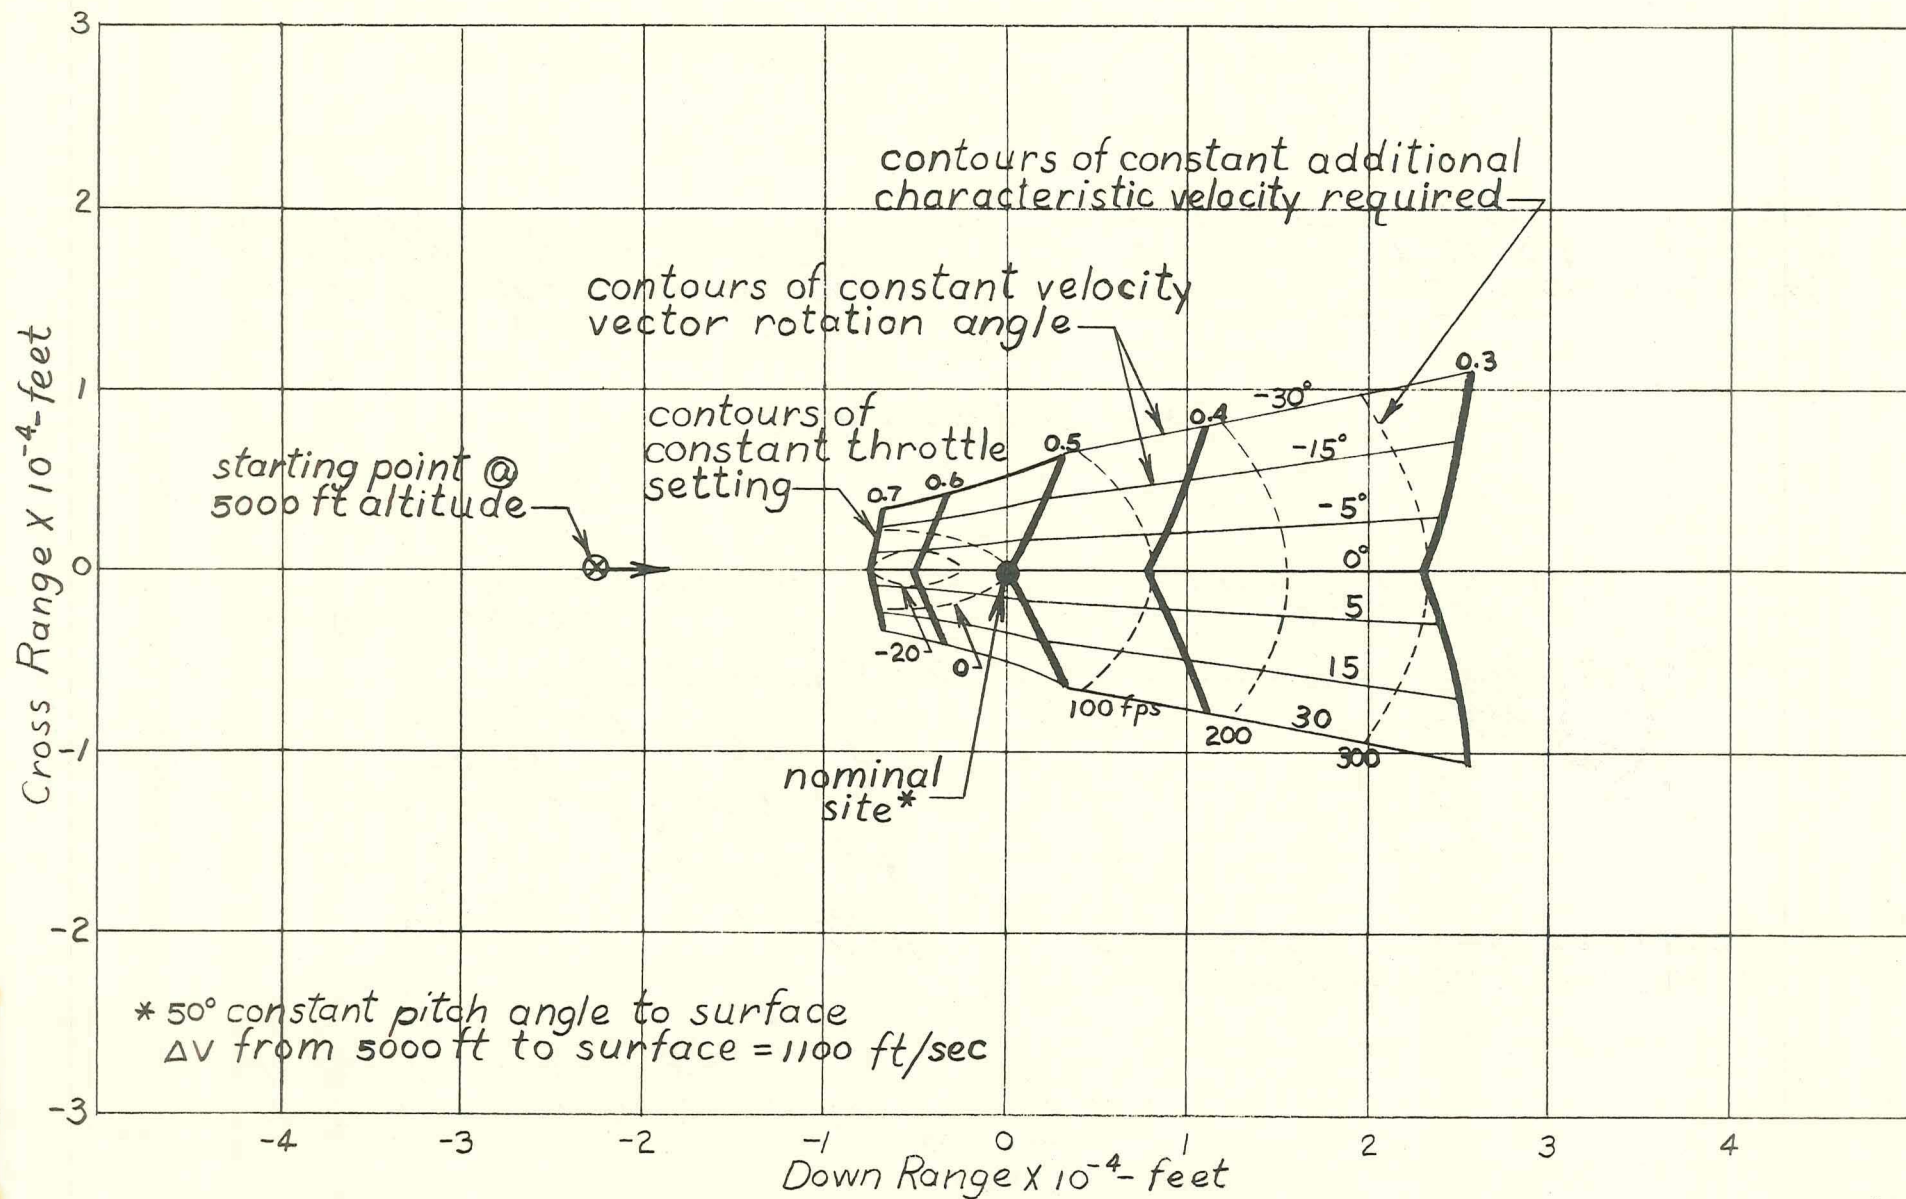 3
2
1
0
-1
-2
-3
Cross Range X 10⁻⁴-feet
contours of constant additional
characteristic velocity required
contours of constant velocity
vector rotation angle
contours of
constant throttle
setting
starting point @
5000 ft altitude
0.7
0.6
0.5
0.4
0.3
-30°
-15°
-5°
0°
5
15
30
-20
0
100 fps
200
300
nominal
site*
* 50° constant pitch angle to surface
ΔV from 5000 ft to surface = 1100 ft/sec
-4
-3
-2
-1
0
1
2
3
4
Down Range X 10⁻⁴- feet